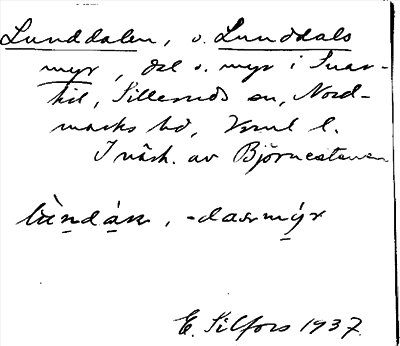 Lunddalen, o. Lunddals
myr, del o. myr i Svar-
kil, Silleruds sn, Nord-
marks hd, Vrml l.
I närh. av Björnestenen
lùndák, -dasmýr
E. Silfors 1937.